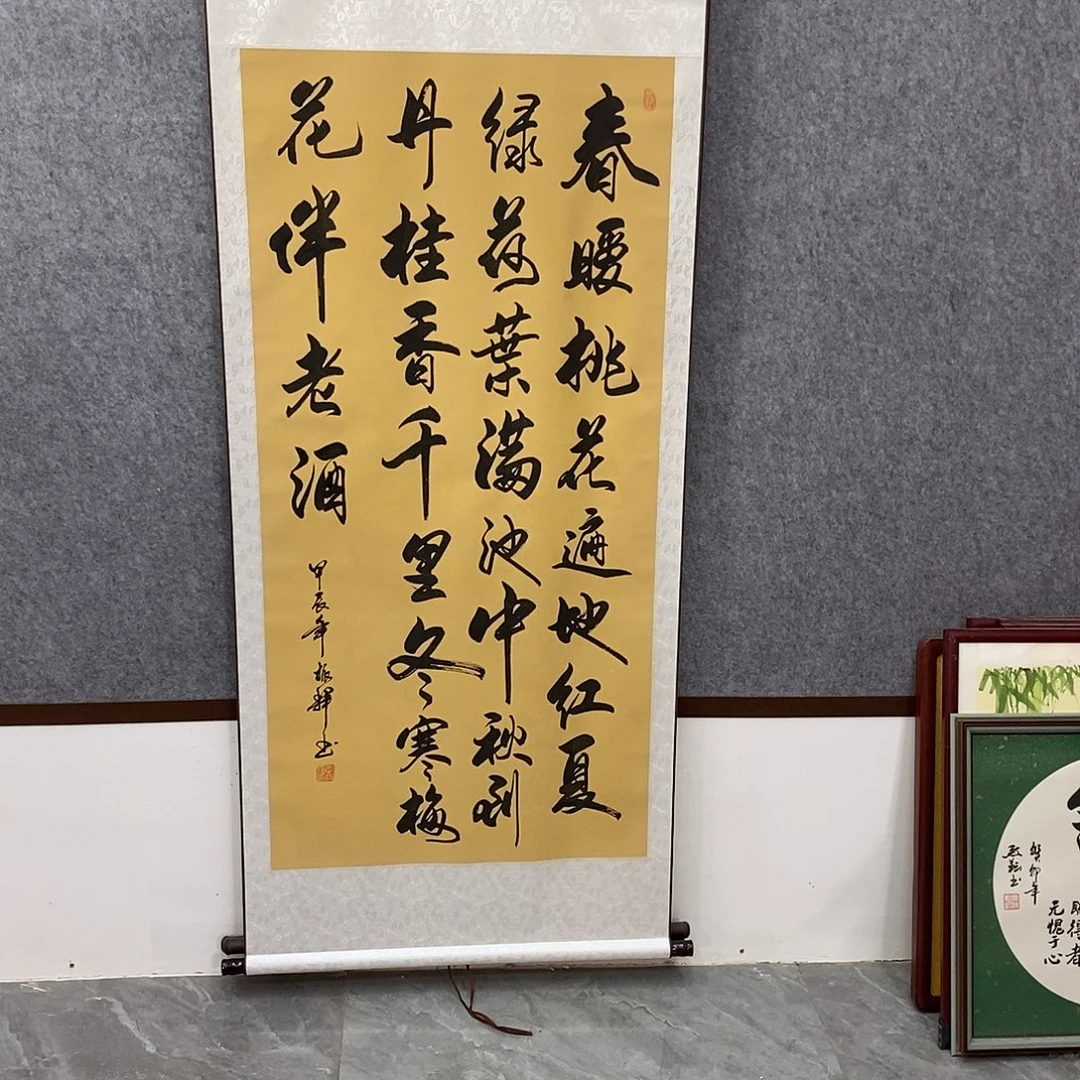 春暖桃花遍地红夏
绿荷葉满池中秋到
丹桂香千里冬寒梅
花伴老酒
甲辰年振辉书
癸卯年
书
无愧于心